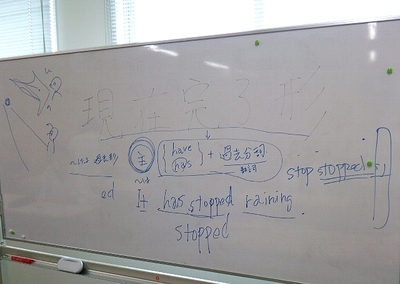 現在完了形
過去形 主 have has + 過去分詞
stop stopped
ed It has stopped raining.
stopped